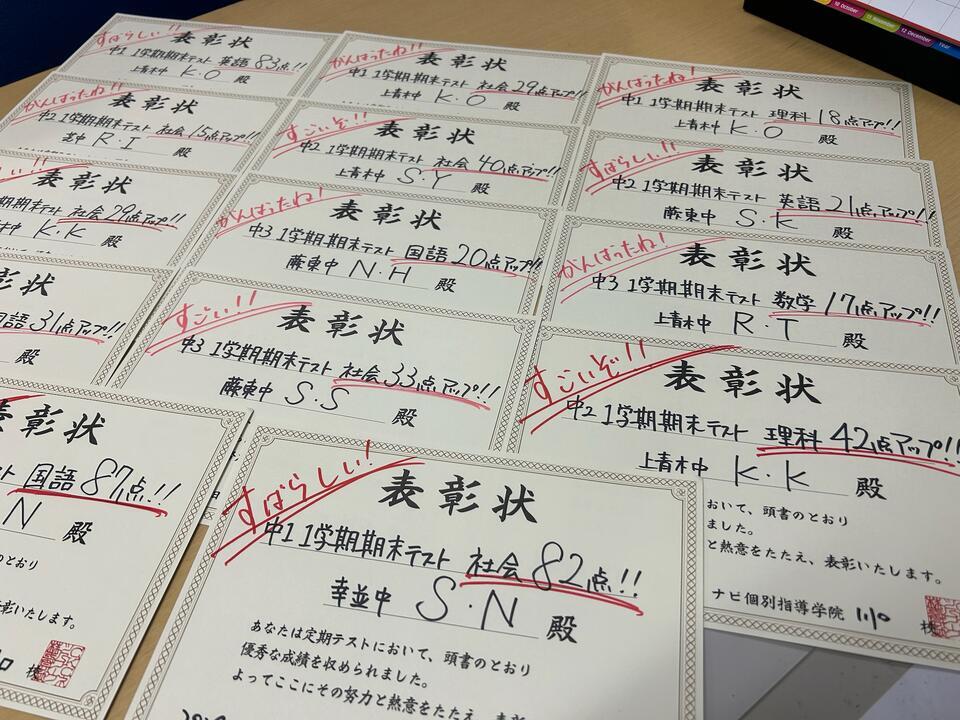 10 October
11 November
12 December
Year
すばらしい!!
表彰状
中1 1学期期末テスト 英語 83点!!
上青木中 K.O 殿
がんばったね!
表彰状
中1 1学期期末テスト 社会 29点アップ!!
上青木中 K.O 殿
がんばったね!
表彰状
中1 1学期期末テスト 理科 18点アップ!!
上青木中 K.O 殿
がんばったね!
表彰状
中2 1学期期末テスト 社会 15点アップ!!
中 R.I 殿
すごいぞ!
表彰状
中2 1学期期末テスト 社会 40点アップ!!
上青木中 S.Y 殿
すばらしい!!
表彰状
中2 1学期期末テスト 英語 21点アップ!!
藤東中 S.K 殿
!!
表彰状
期末テスト 社会 29点アップ!!
K.K 殿
がんばったね!
表彰状
中3 1学期期末テスト 国語 20点アップ!!
藤東中 N.H 殿
がんばったね!
表彰状
中3 1学期期末テスト 数学 17点アップ!!
上青木中 R.T 殿
状
国語 31点アップ!!
殿
すごい!!
表彰状
中3 1学期期末テスト 社会 33点アップ!!
藤東中 S.S 殿
すごいぞ!!
表彰状
中2 1学期期末テスト 理科 42点アップ!!
上青木中 K.K 殿
おいて、頭書のとおり
ました。
と熱意をたたえ、表彰いたします。
ナビ個別指導学院 川口 校
表彰状
スト 国語 87点!!
N 殿
のとおり
彰いたします。
口 校
すばらしい!
表彰状
中1 1学期期末テスト 社会 82点!!
幸並中 S.N 殿
あなたは定期テストにおいて、頭書のとおり
優秀な成績を収められました。
よってここにその努力と熱意をたたえ、表彰